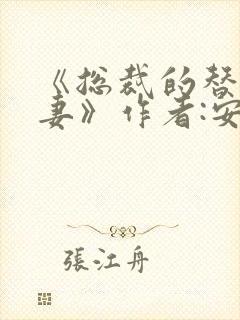 《总裁的替
妻》作者:安
張江舟